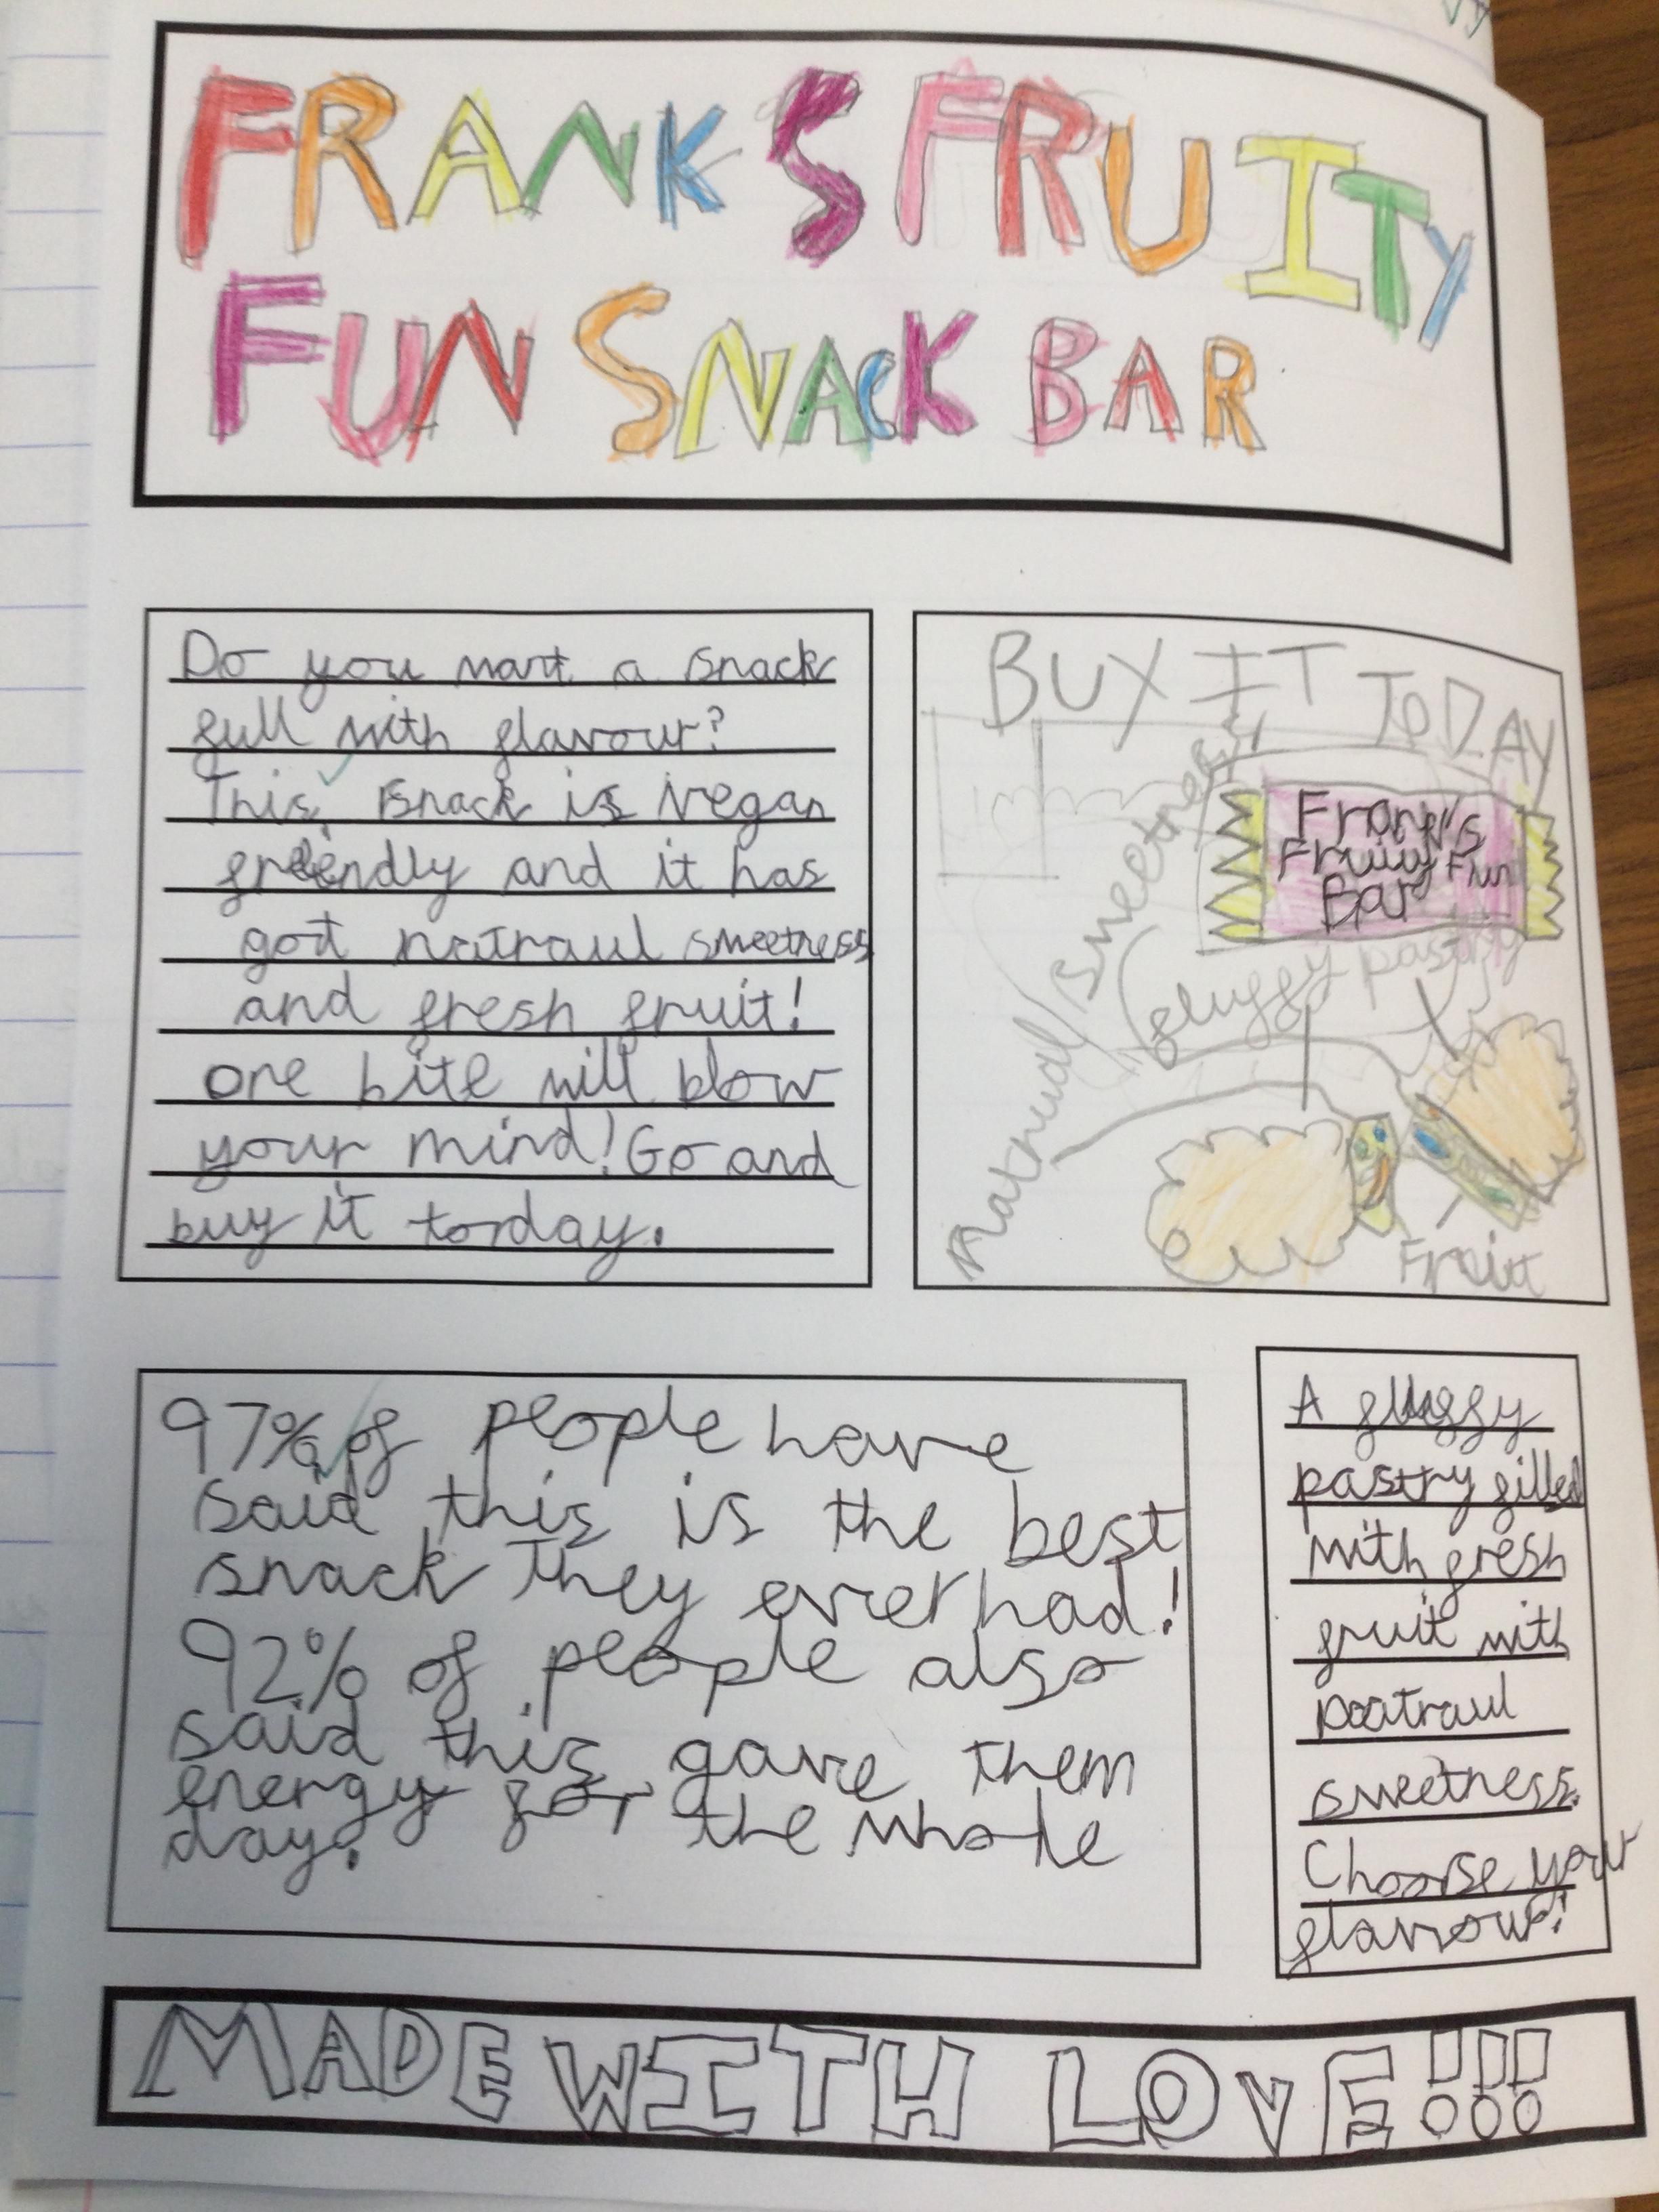 FRANKS FRUITY
FUN SNACK BAR
Do you want a snack
full with flavour?
This snack is vegan
freindly and it has
got natraul sweetness
and fresh fruit!
one bite will blow
your mind! Go and
buy it torday.
BUY IT TODAY
Frank's
Fruity Fun
Bar
natrual sweetness
fluffy pastry
Fruit
97% of people have
said this is the best
snack they ever had!
92% of people also
said this gave them
energy for the whole
day.
A fluffy
pastry filled
with fresh
fruit with
natraul
sweetness.
Choose your
flavour!
MADE WITH LOVE!!!